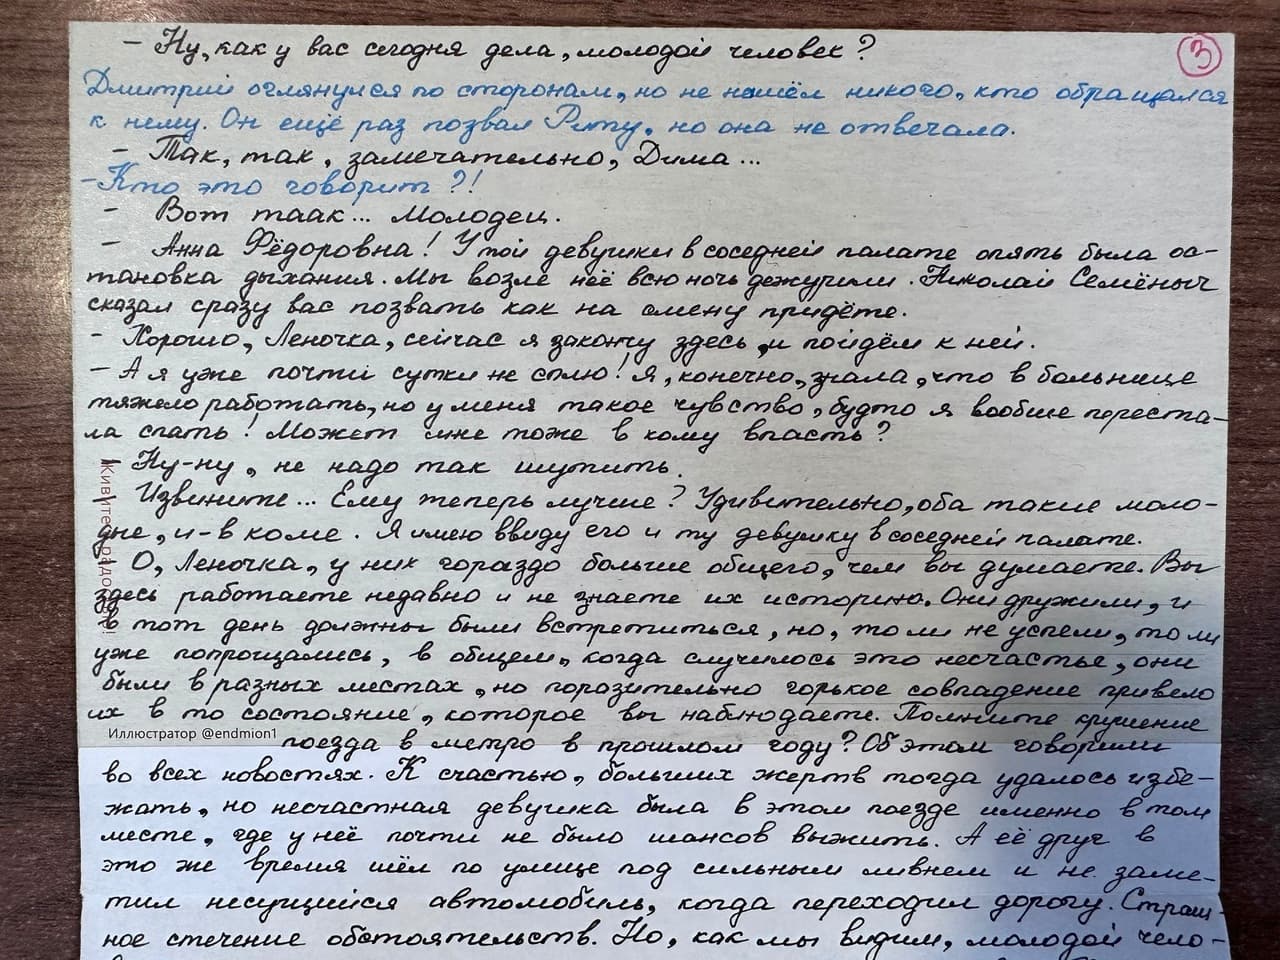 – Ну, как у вас сегодня дела, молодой человек?
3
Дмитрий оглянулся по сторонам, но не нашёл никого, кто обращался
к нему. Он ещё раз позвал Риту, но она не отвечала.
– Так, так, замечательно, Дима...
– Кто это говорит?!
– Вот таак... Молодец.
– Анна Фёдоровна! У той девушки в соседней палате опять была ос-
тановка дыхания. Мы возле неё всю ночь дежурили. Николай Семёныч
сказал сразу вас позвать как на смену придёте.
– Хорошо, Леночка, сейчас я закончу здесь, и пойдём к ней.
– А я уже почти сутки не сплю! Я, конечно, знала, что в больнице
тяжело работать, но у меня такое чувство, будто я вообще переста-
ла спать! Может мне тоже в кому впасть?
– Ну-ну, не надо так шутить.
– Извините... Ему теперь лучше? Удивительно, оба такие моло-
дые, и – в коме. Я имею ввиду его и ту девушку в соседней палате.
– О, Леночка, у них гораздо больше общего, чем вы думаете. Вы
здесь работаете недавно и не знаете их историю. Они дружили, и
в тот день должны были встретиться, но, то ли не успели, то ли
уже попрощались, в общем, когда случилось это несчастье, они
были в разных местах, но поразительно горькое совпадение привело
их в то состояние, которое вы наблюдаете. Помните крушение
Живите радостно!
Иллюстратор @endmion1
поезда в метро в прошлом году? Об этом говорили
во всех новостях. К счастью, больших жертв тогда удалось избе-
жать, но несчастная девушка была в этом поезде именно в том
месте, где у неё почти не было шансов выжить. А её друг в
это же время шёл по улице под сильным ливнем и не заме-
тил несущийся автомобиль, когда переходил дорогу. Страш-
ное стечение обстоятельств. Но, как мы видим, молодой чело-